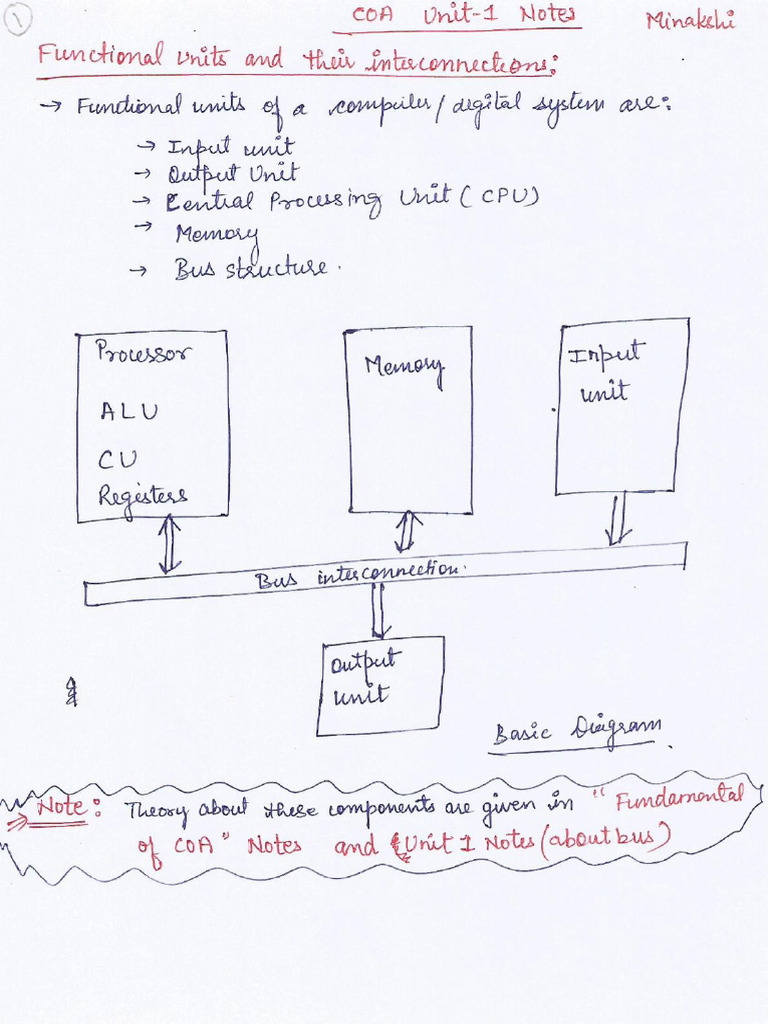 1
COA Unit-1 Notes
Minakshi
Functional units and their interconnections:
→ Functional units of a computer/digital system are:
→ Input unit
→ Output Unit
→ Central Processing Unit (CPU)
→ Memory
→ Bus structure.
Processor
ALU
CU
Registers
Memory
Input
unit
Bus interconnection.
Output
unit
Basic Diagram.
Note: Theory about these components are given in "Fundamental
of COA" Notes and Unit 1 Notes (about bus)